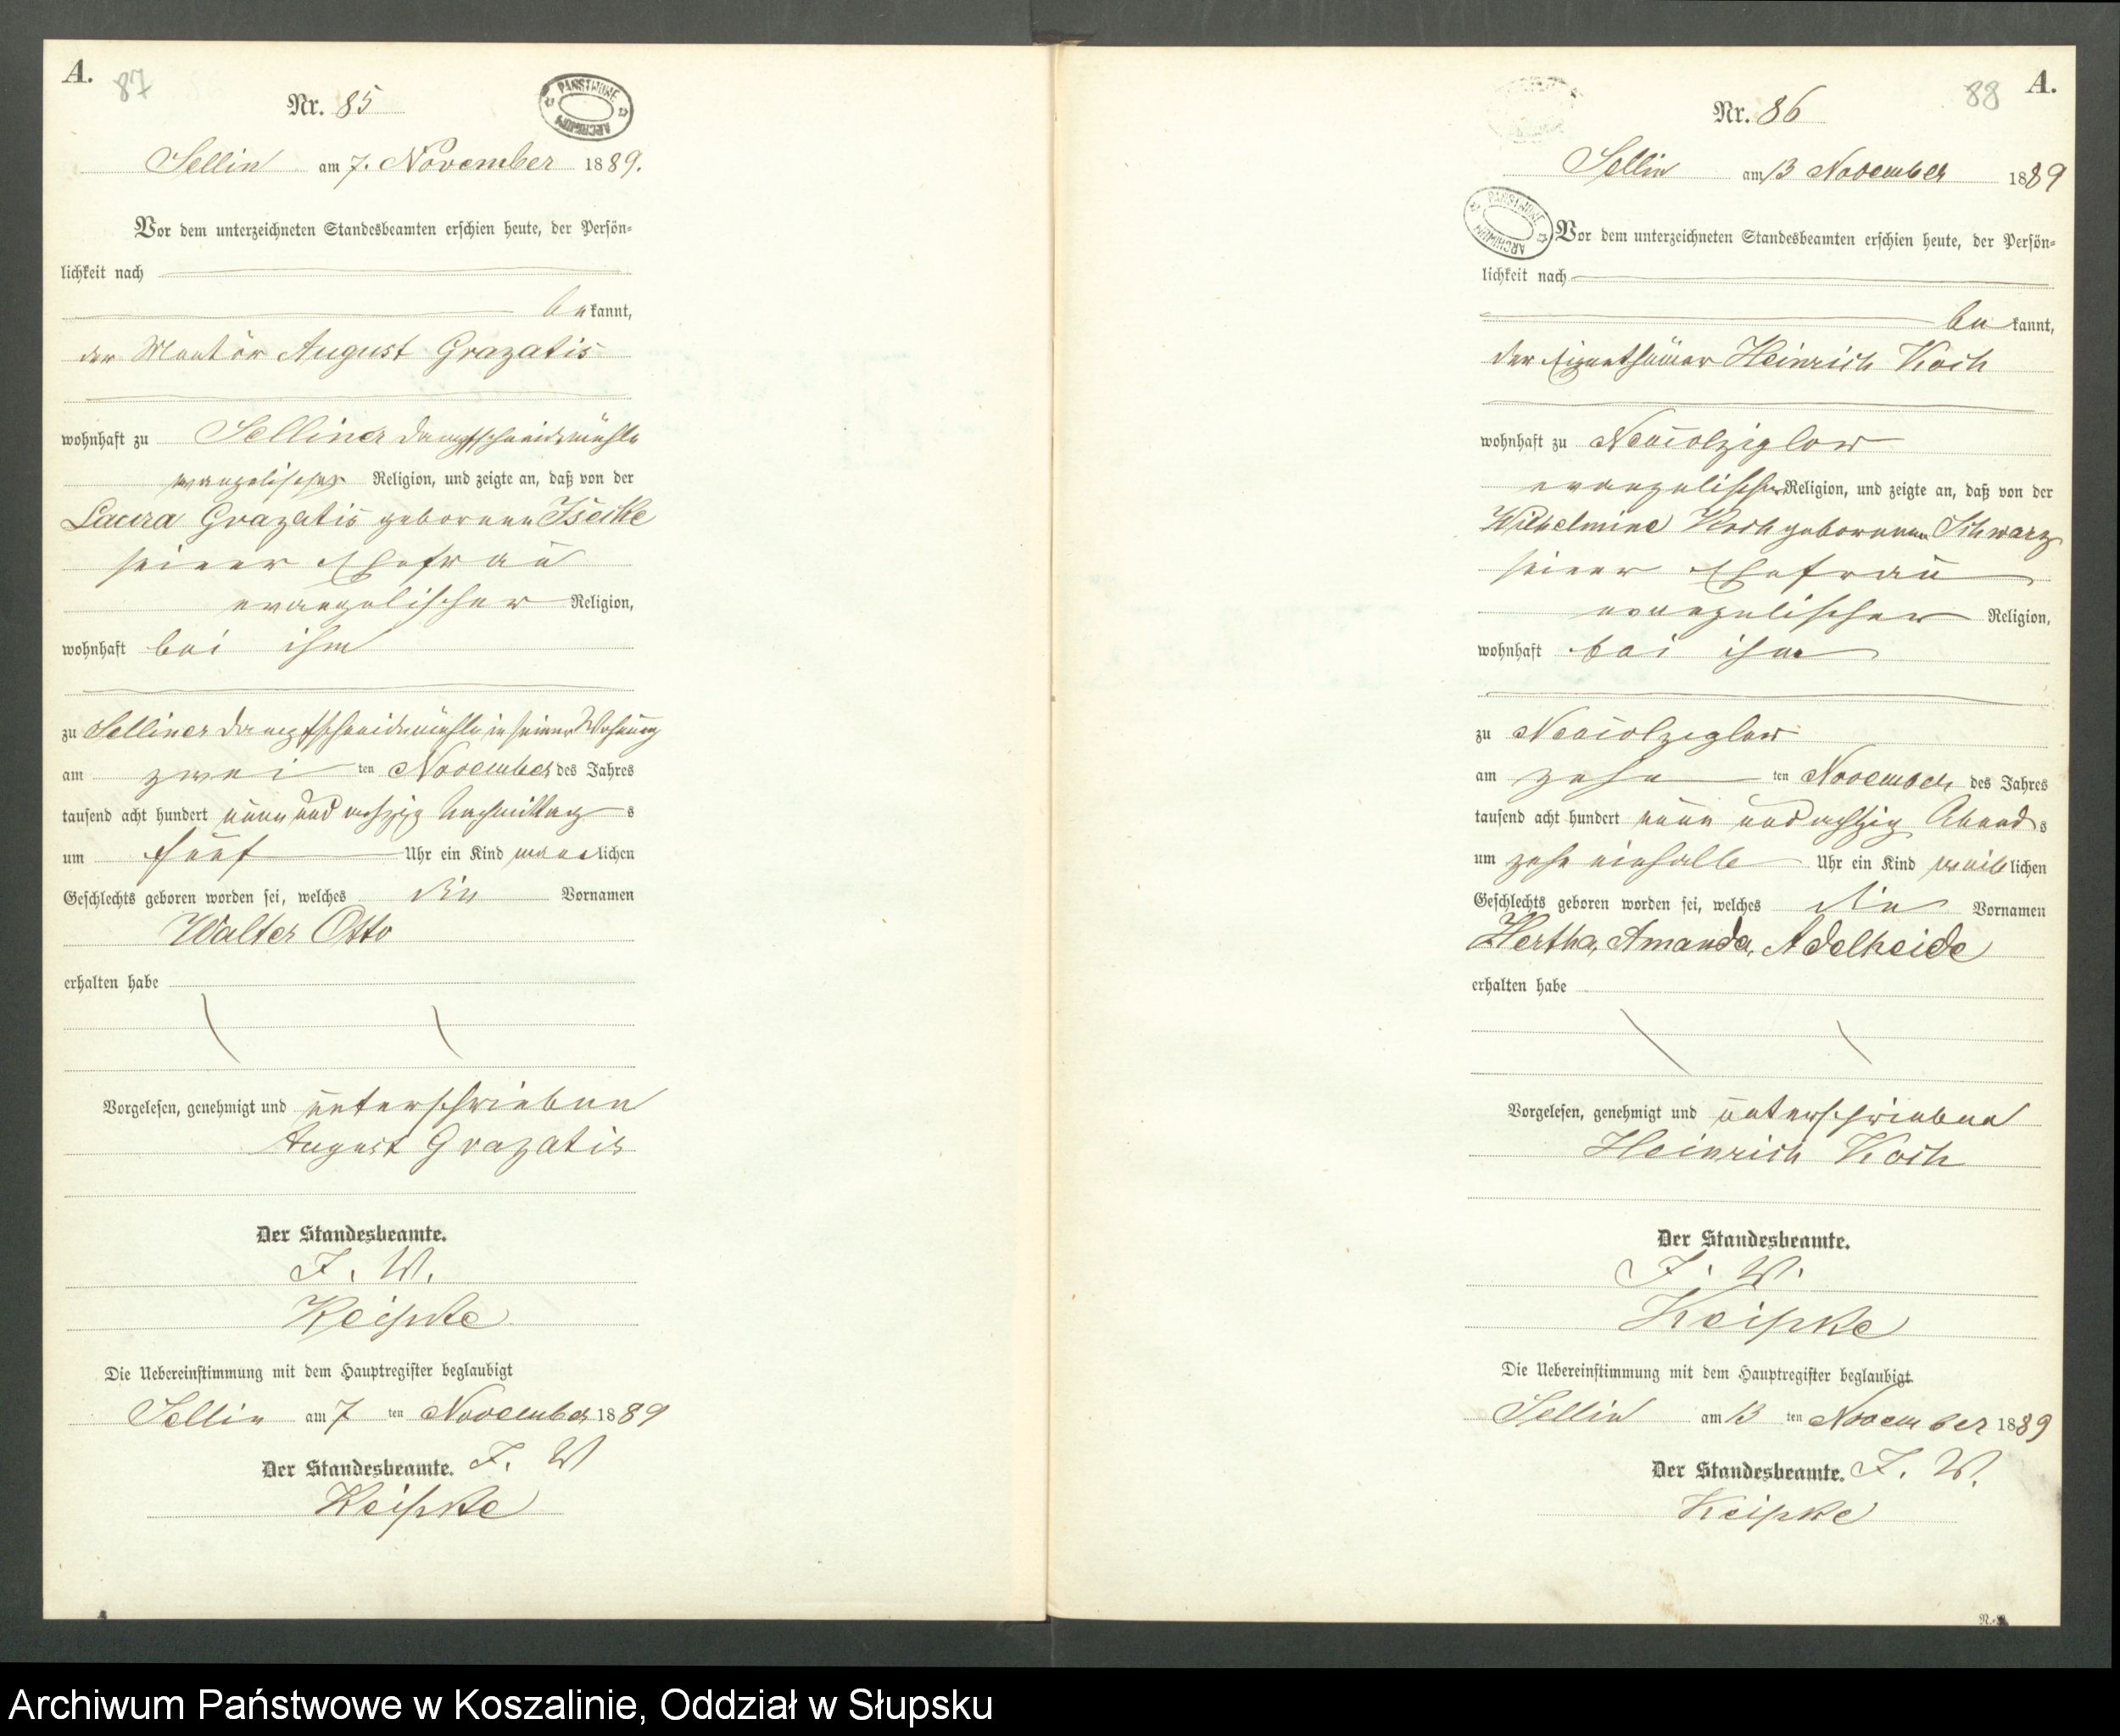 A.
87
Nr. 85
PAŃSTWOWE ARCHIWUM
Sellin am 7. November 1889.
Vor dem unterzeichneten Standesbeamten erschien heute, der Persön-
lichkeit nach
be kannt,
der August Grazatis
wohnhaft zu Selliner Dampfschneidemühle
evangelischer Religion, und zeigte an, daß von der
Laura Grazatis geborenen
seiner Ehefrau
evangelischer Religion,
wohnhaft bei ihm
zu Selliner Dampfschneidemühle in seiner Wohnung
am zwei ten November des Jahres
tausend acht hundert neun und achtzig Nachmittag s
um fünf Uhr ein Kind männlichen
Geschlechts geboren worden sei, welches die Vornamen
Walter Otto
erhalten habe
Vorgelesen, genehmigt und unterschrieben
August Grazatis
Der Standesbeamte.
J. W.
Keipke
Die Uebereinstimmung mit dem Hauptregister beglaubigt
Sellin am 7 ten November 1889
Der Standesbeamte. J. W
Keipke
A.
88
Nr. 86
Sellin am 13 November 1889
PAŃSTWOWE ARCHIWUM
Vor dem unterzeichneten Standesbeamten erschien heute, der Persön-
lichkeit nach
be kannt,
der Eigenthümer Heinrich Koch
wohnhaft zu Neuiolziglow
evangelischer Religion, und zeigte an, daß von der
Wilhelmine Koch geborenen Schwarz
seiner Ehefrau
evangelischer Religion,
wohnhaft bei ihm
zu Neuiolzeglow
am zehn ten November des Jahres
tausend acht hundert neun und achtzig Abend s
um zehn einhalb Uhr ein Kind weiblichen
Geschlechts geboren worden sei, welches die Vornamen
Hertha, Amanda, Adelheide
erhalten habe
Vorgelesen, genehmigt und unterschrieben
Heinrich Koch
Der Standesbeamte.
J. W.
Keipke
Die Uebereinstimmung mit dem Hauptregister beglaubigt
Sellin am 13 ten November 1889
Der Standesbeamte. J. W.
Keipke
Archiwum Państwowe w Koszalinie, Oddział w Słupsku